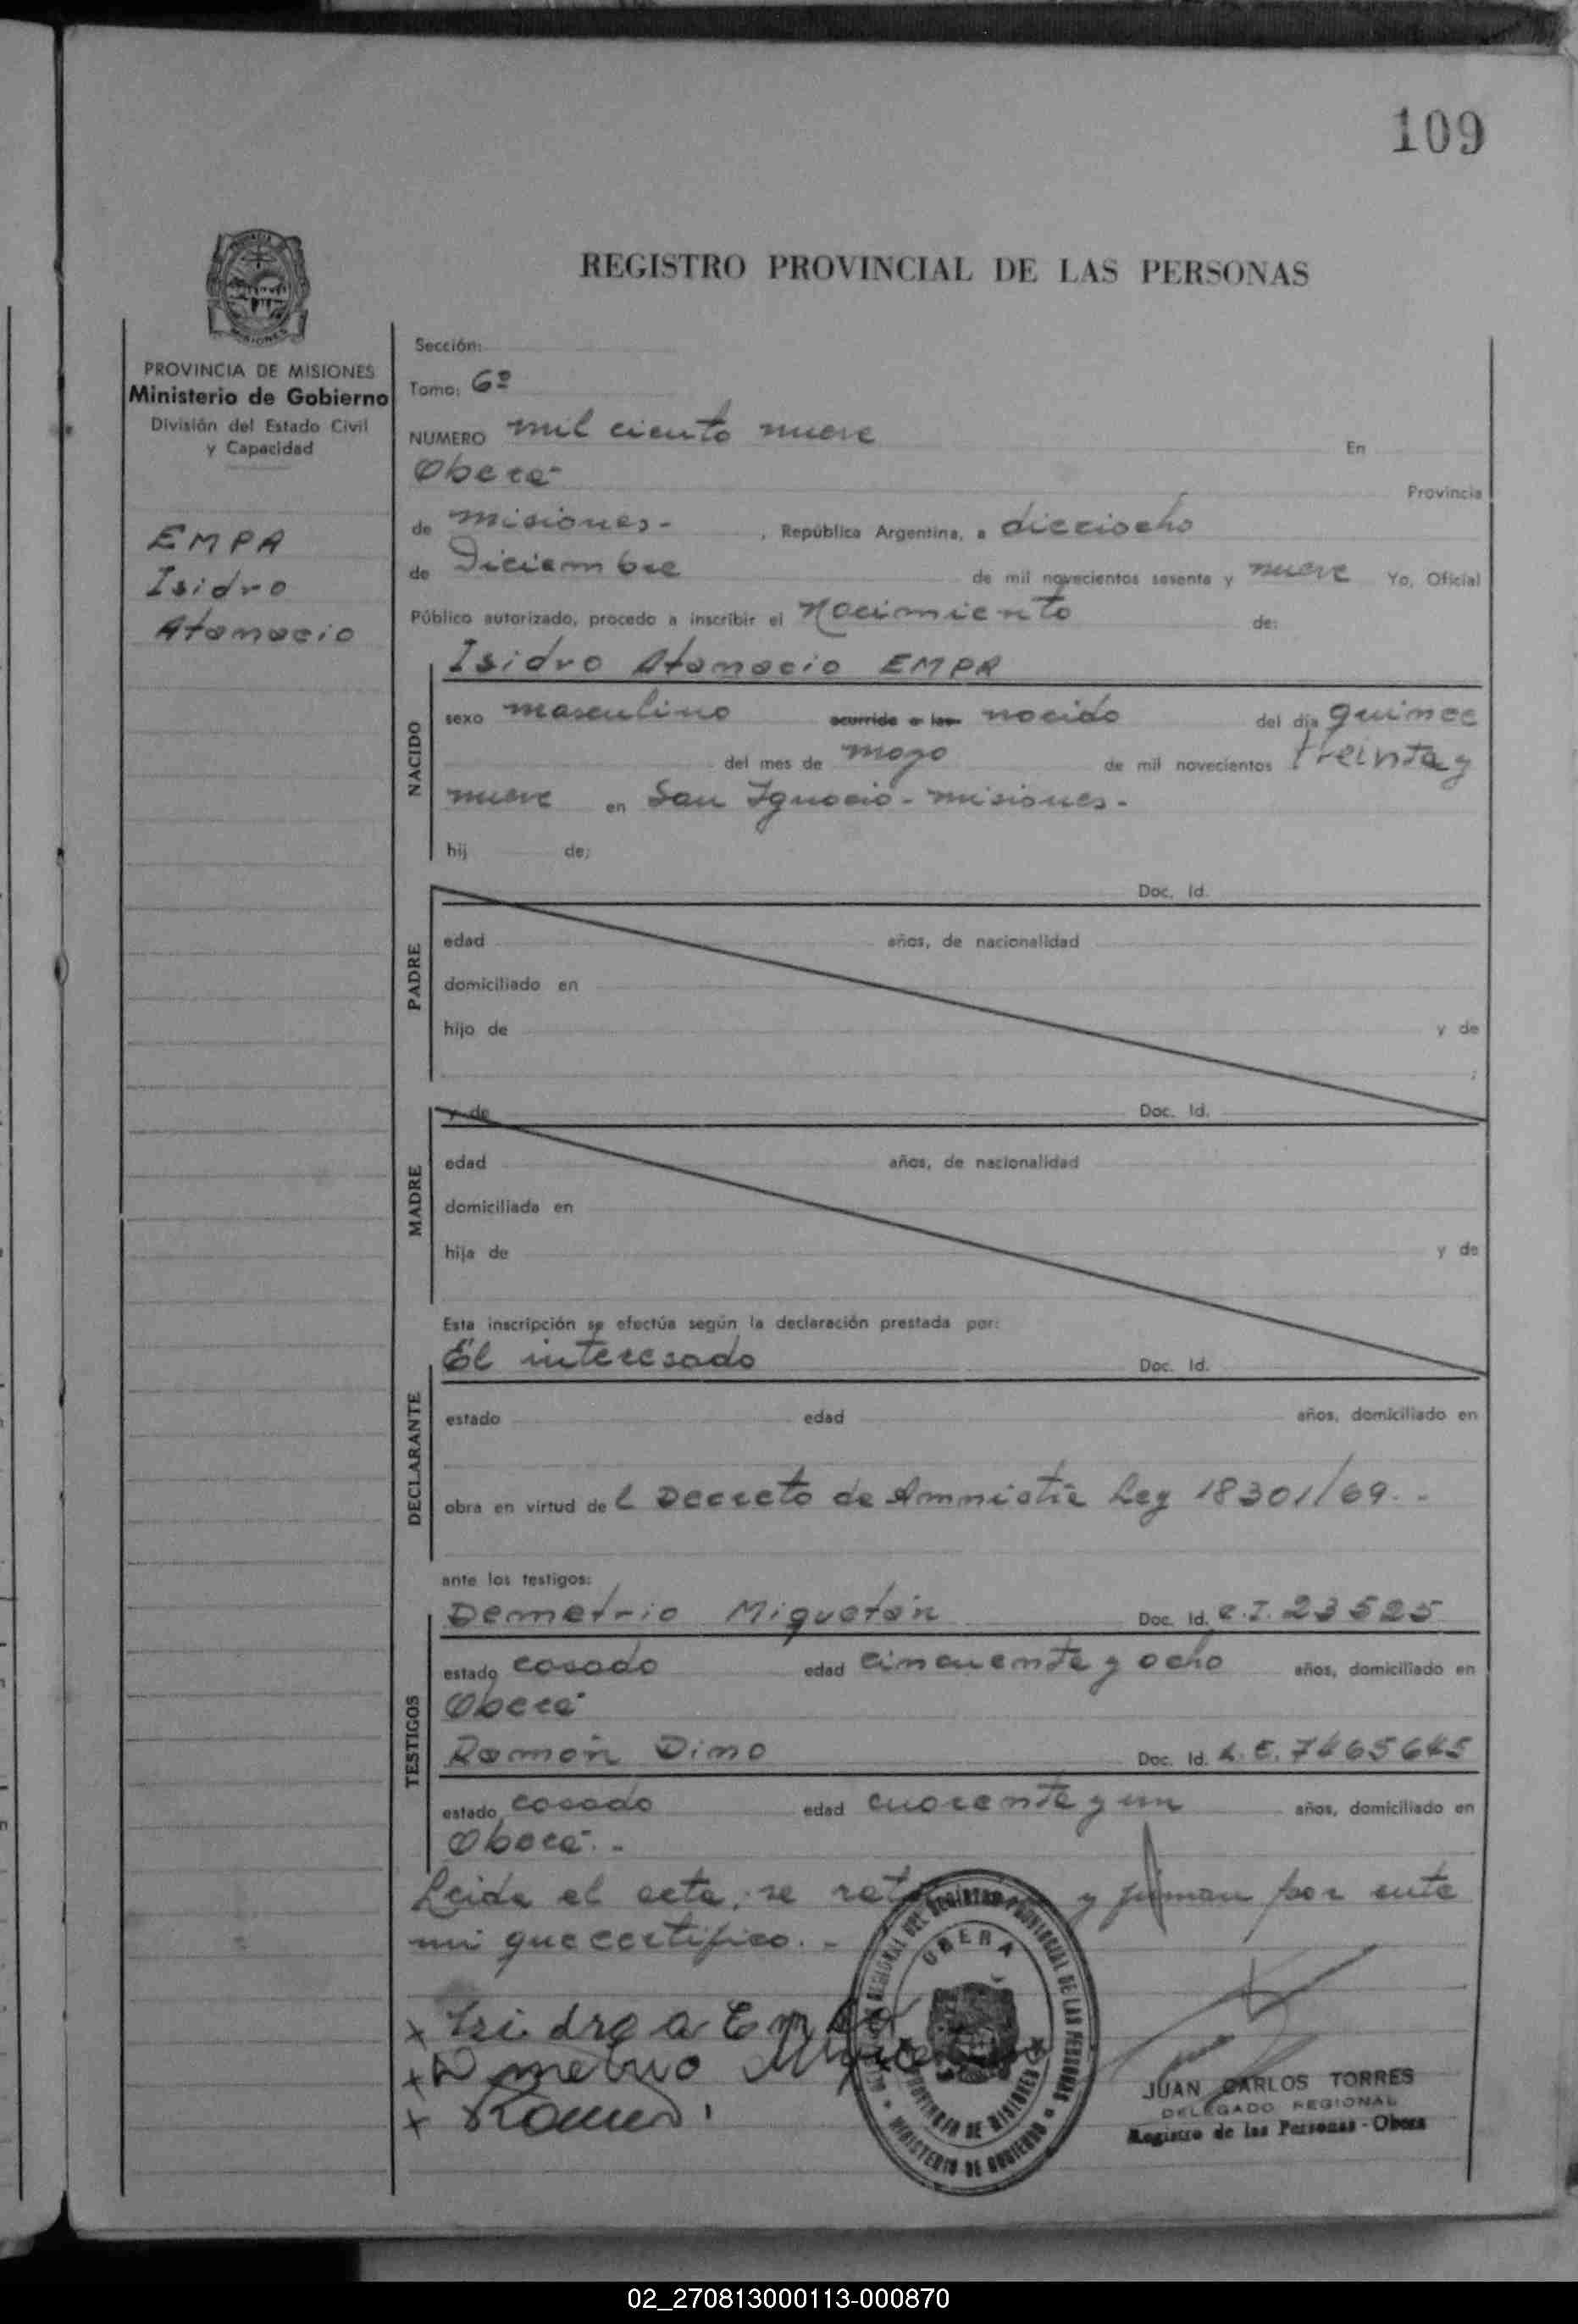 109
REGISTRO PROVINCIAL DE LAS PERSONAS
PROVINCIA DE MISIONES
Ministerio de Gobierno
División del Estado Civil
y Capacidad
EMPA
Isidro
Atanacio
Sección:
Tomo: 6º
NUMERO mil ciento nueve En
Oberá
Provincia
de Misiones- , República Argentina, a dieciocho
de Diciembre de mil novecientos sesenta y nueve Yo, Oficial
Público autorizado, procedo a inscribir el Nacimiento de:
NACIDO
Isidro Atanacio EMPA
sexo masculino ocurrido a las nacido del día quince
del mes de mayo de mil novecientos treinta y
nueve en San Ignacio - Misiones-
hij de:
PADRE
Doc. Id.
edad años, de nacionalidad
domiciliado en
hijo de y de
;
MADRE
y de Doc. Id.
edad años, de nacionalidad
domiciliada en
hija de y de
Esta inscripción se efectúa según la declaración prestada por:
DECLARANTE
El interesado Doc. Id.
estado edad años, domiciliado en
obra en virtud de l Decreto de Amnistia Ley 18301/69.-
ante los testigos:
TESTIGOS
Demetrio Miguetán Doc. Id. C.I. 23525
estado casado edad cincuenta y ocho años, domiciliado en
Oberá
Ramón Dino Doc. Id. L.E. 7465645
estado casado edad cuarenta y un años, domiciliado en
Oberá.-
Leida el acta, se y firman por ante
mi que certifico.-
x Isidro a Empa
x
x
REGIONAL DEL REGISTRO PROVINCIAL DE LAS PERSONAS
OBERA
PROVINCIA DE MISIONES
MINISTERIO DE GOBIERNO
JUAN CARLOS TORRES
DELEGADO REGIONAL
Registro de las Personas - Obera
02_270813000113-000870